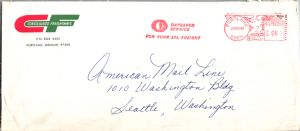 CONSOLIDATED FREIGHTWAYS
PORTLAND, OREGON 97208
DAYSAVER
SERVICE
FOR YOUR LTL FREIGHT
American Mail Line
1010 Washington Bldg
Seattle, Washington